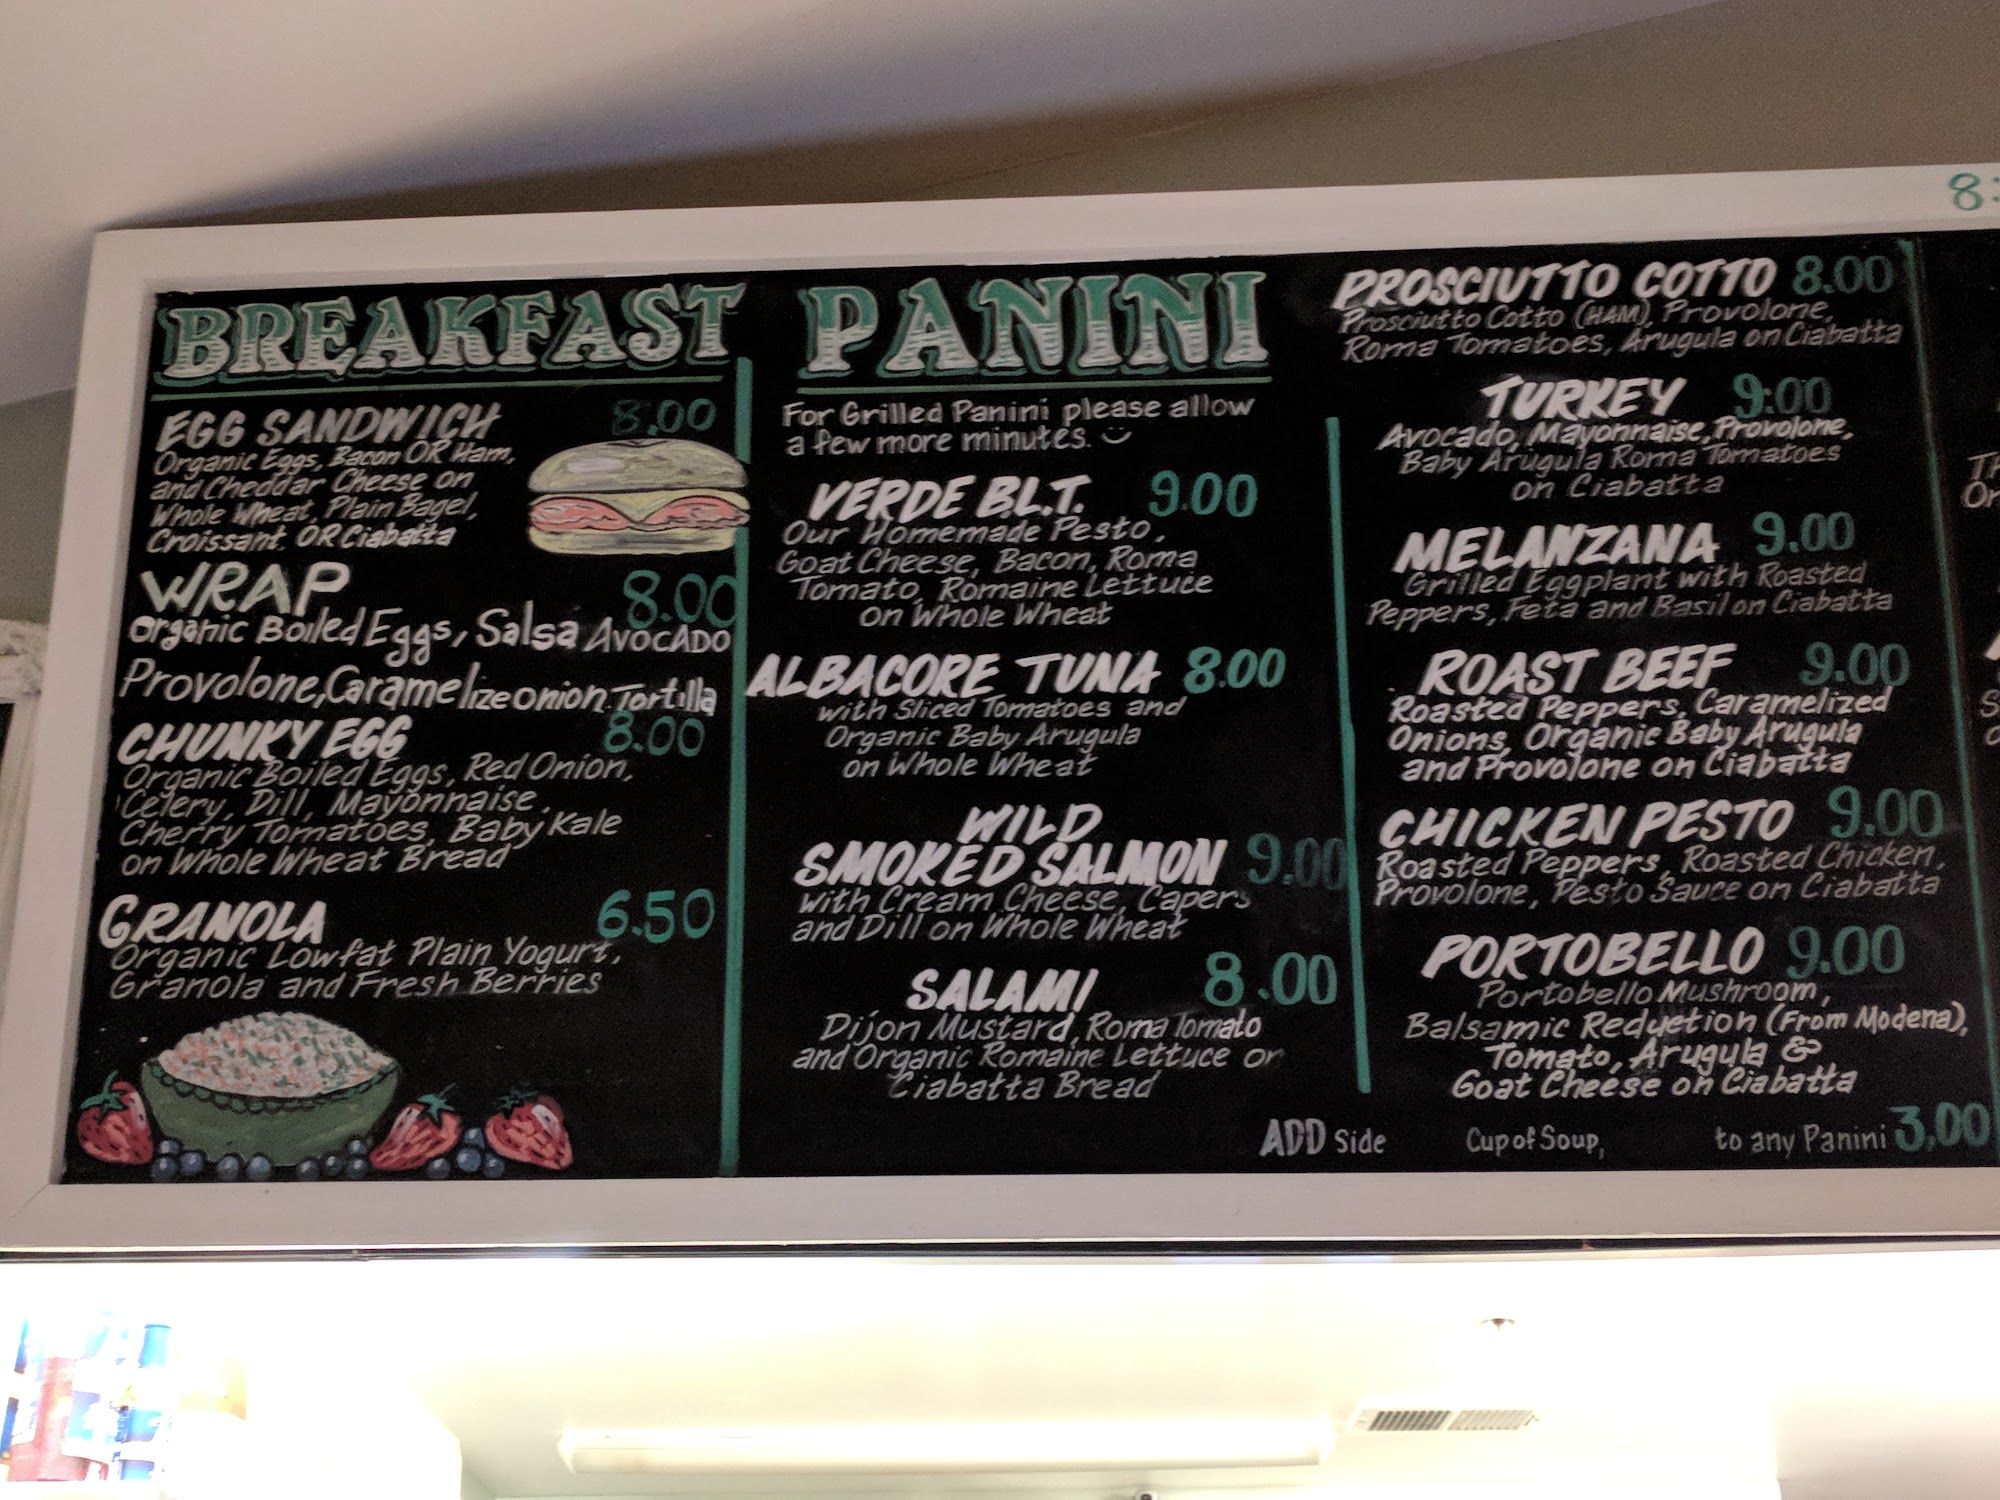 BREAKFAST
EGG SANDWICH 8.00
Organic Eggs, Bacon OR Ham,
and Cheddar Cheese on
Whole Wheat, Plain Bagel,
Croissant, OR Ciabatta
WRAP 8.00
Organic Boiled Eggs, Salsa AVOCADO
Provolone, Caramelize onion. Tortilla
CHUNKY EGG 8.00
Organic Boiled Eggs, Red Onion,
Celery, Dill, Mayonnaise,
Cherry Tomatoes, Baby Kale
on Whole Wheat Bread
GRANOLA 6.50
Organic Lowfat Plain Yogurt,
Granola and Fresh Berries
PANINI
For Grilled Panini please allow
a few more minutes.
VERDE B.L.T. 9.00
Our Homemade Pesto,
Goat Cheese, Bacon, Roma
Tomato, Romaine Lettuce
on Whole Wheat
ALBACORE TUNA 8.00
with Sliced Tomatoes and
Organic Baby Arugula
on Whole Wheat
WILD
SMOKED SALMON 9.00
with Cream Cheese, Capers
and Dill on Whole Wheat
SALAMI 8.00
Dijon Mustard, Roma Tomato
and Organic Romaine Lettuce or
Ciabatta Bread
PROSCIUTTO COTTO 8.00
Prosciutto Cotto (HAM), Provolone,
Roma Tomatoes, Arugula on Ciabatta
TURKEY 9:00
Avocado, Mayonnaise, Provolone,
Baby Arugula Roma Tomatoes
on Ciabatta
MELANZANA 9.00
Grilled Eggplant with Roasted
Peppers, Feta and Basil on Ciabatta
ROAST BEEF 9.00
Roasted Peppers, Caramelized
Onions, Organic Baby Arugula
and Provolone on Ciabatta
CHICKEN PESTO 9.00
Roasted Peppers, Roasted Chicken,
Provolone, Pesto Sauce on Ciabatta
PORTOBELLO 9.00
Portobello Mushroom,
Balsamic Reduction (From Modena),
Tomato, Arugula &
Goat Cheese on Ciabatta
ADD Side Cup of Soup, to any Panini 3.00
8: